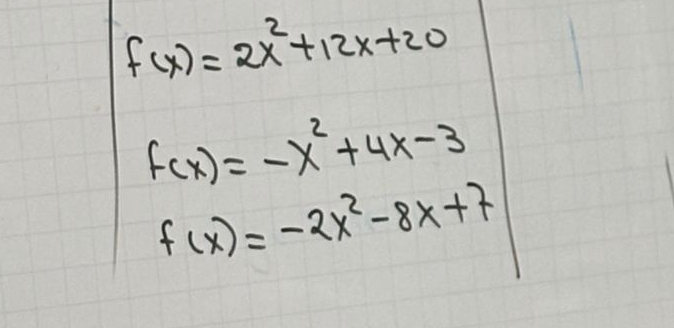 f(x) = 2x²+12x+20
f(x) = -x²+4x-3
f(x) = -2x²-8x+7